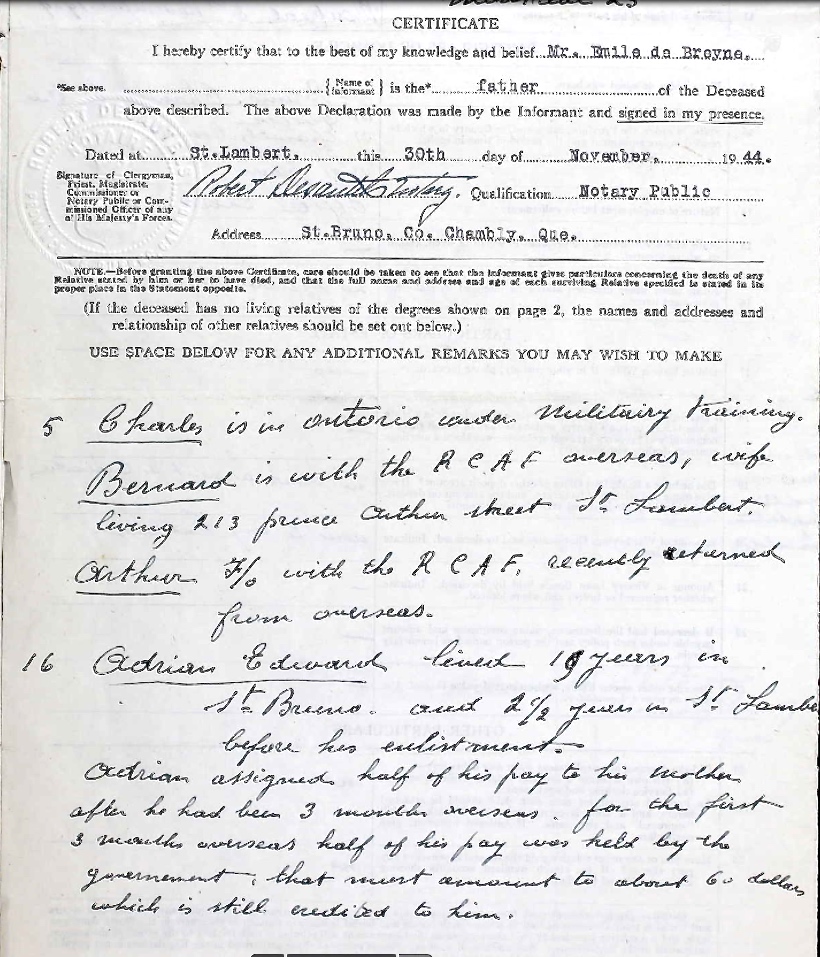 CERTIFICATE
I hereby certify that to the best of my knowledge and belief Mr. Emile de Breyne,
*See above. { Name of Informant } is the* father of the Deceased
above described. The above Declaration was made by the Informant and signed in my presence.
Dated at St.Lambert, this 30th day of November, 1944.
Signature of Clergyman,
Priest, Magistrate,
Commissioner or
Notary Public or Com-
missioned Officer of any
of His Majesty's Forces.
Robert Qualification Notary Public
Address St.Bruno, Co. Chambly, Que.
NOTE.—Before granting the above Certificate, care should be taken to see that the Informant gives particulars concerning the death of any
Relative stated by him or her to have died, and that the full name and address and age of each surviving Relative specified is stated in its
proper place in the Statement opposite.
(If the deceased has no living relatives of the degrees shown on page 2, the names and addresses and
relationship of other relatives should be set out below.)
USE SPACE BELOW FOR ANY ADDITIONAL REMARKS YOU MAY WISH TO MAKE
5 Charles is in Ontario under Militairy Training.
Bernard is with the R C A F overseas, wife
living 213 prince Arthur street St Lambert.
Arthur F/o with the R C A F, recently returned
from overseas.
16 Adrian Edward lived 19 years in
St Bruno. and 2 1/2 years in St Lambe
before his enlistment.
Adrian assigned half of his pay to his mother
after he had been 3 months overseas. for the first
3 months overseas half of his pay was held by the
governement, that must amount to about 60 dollars
which is still credited to him.